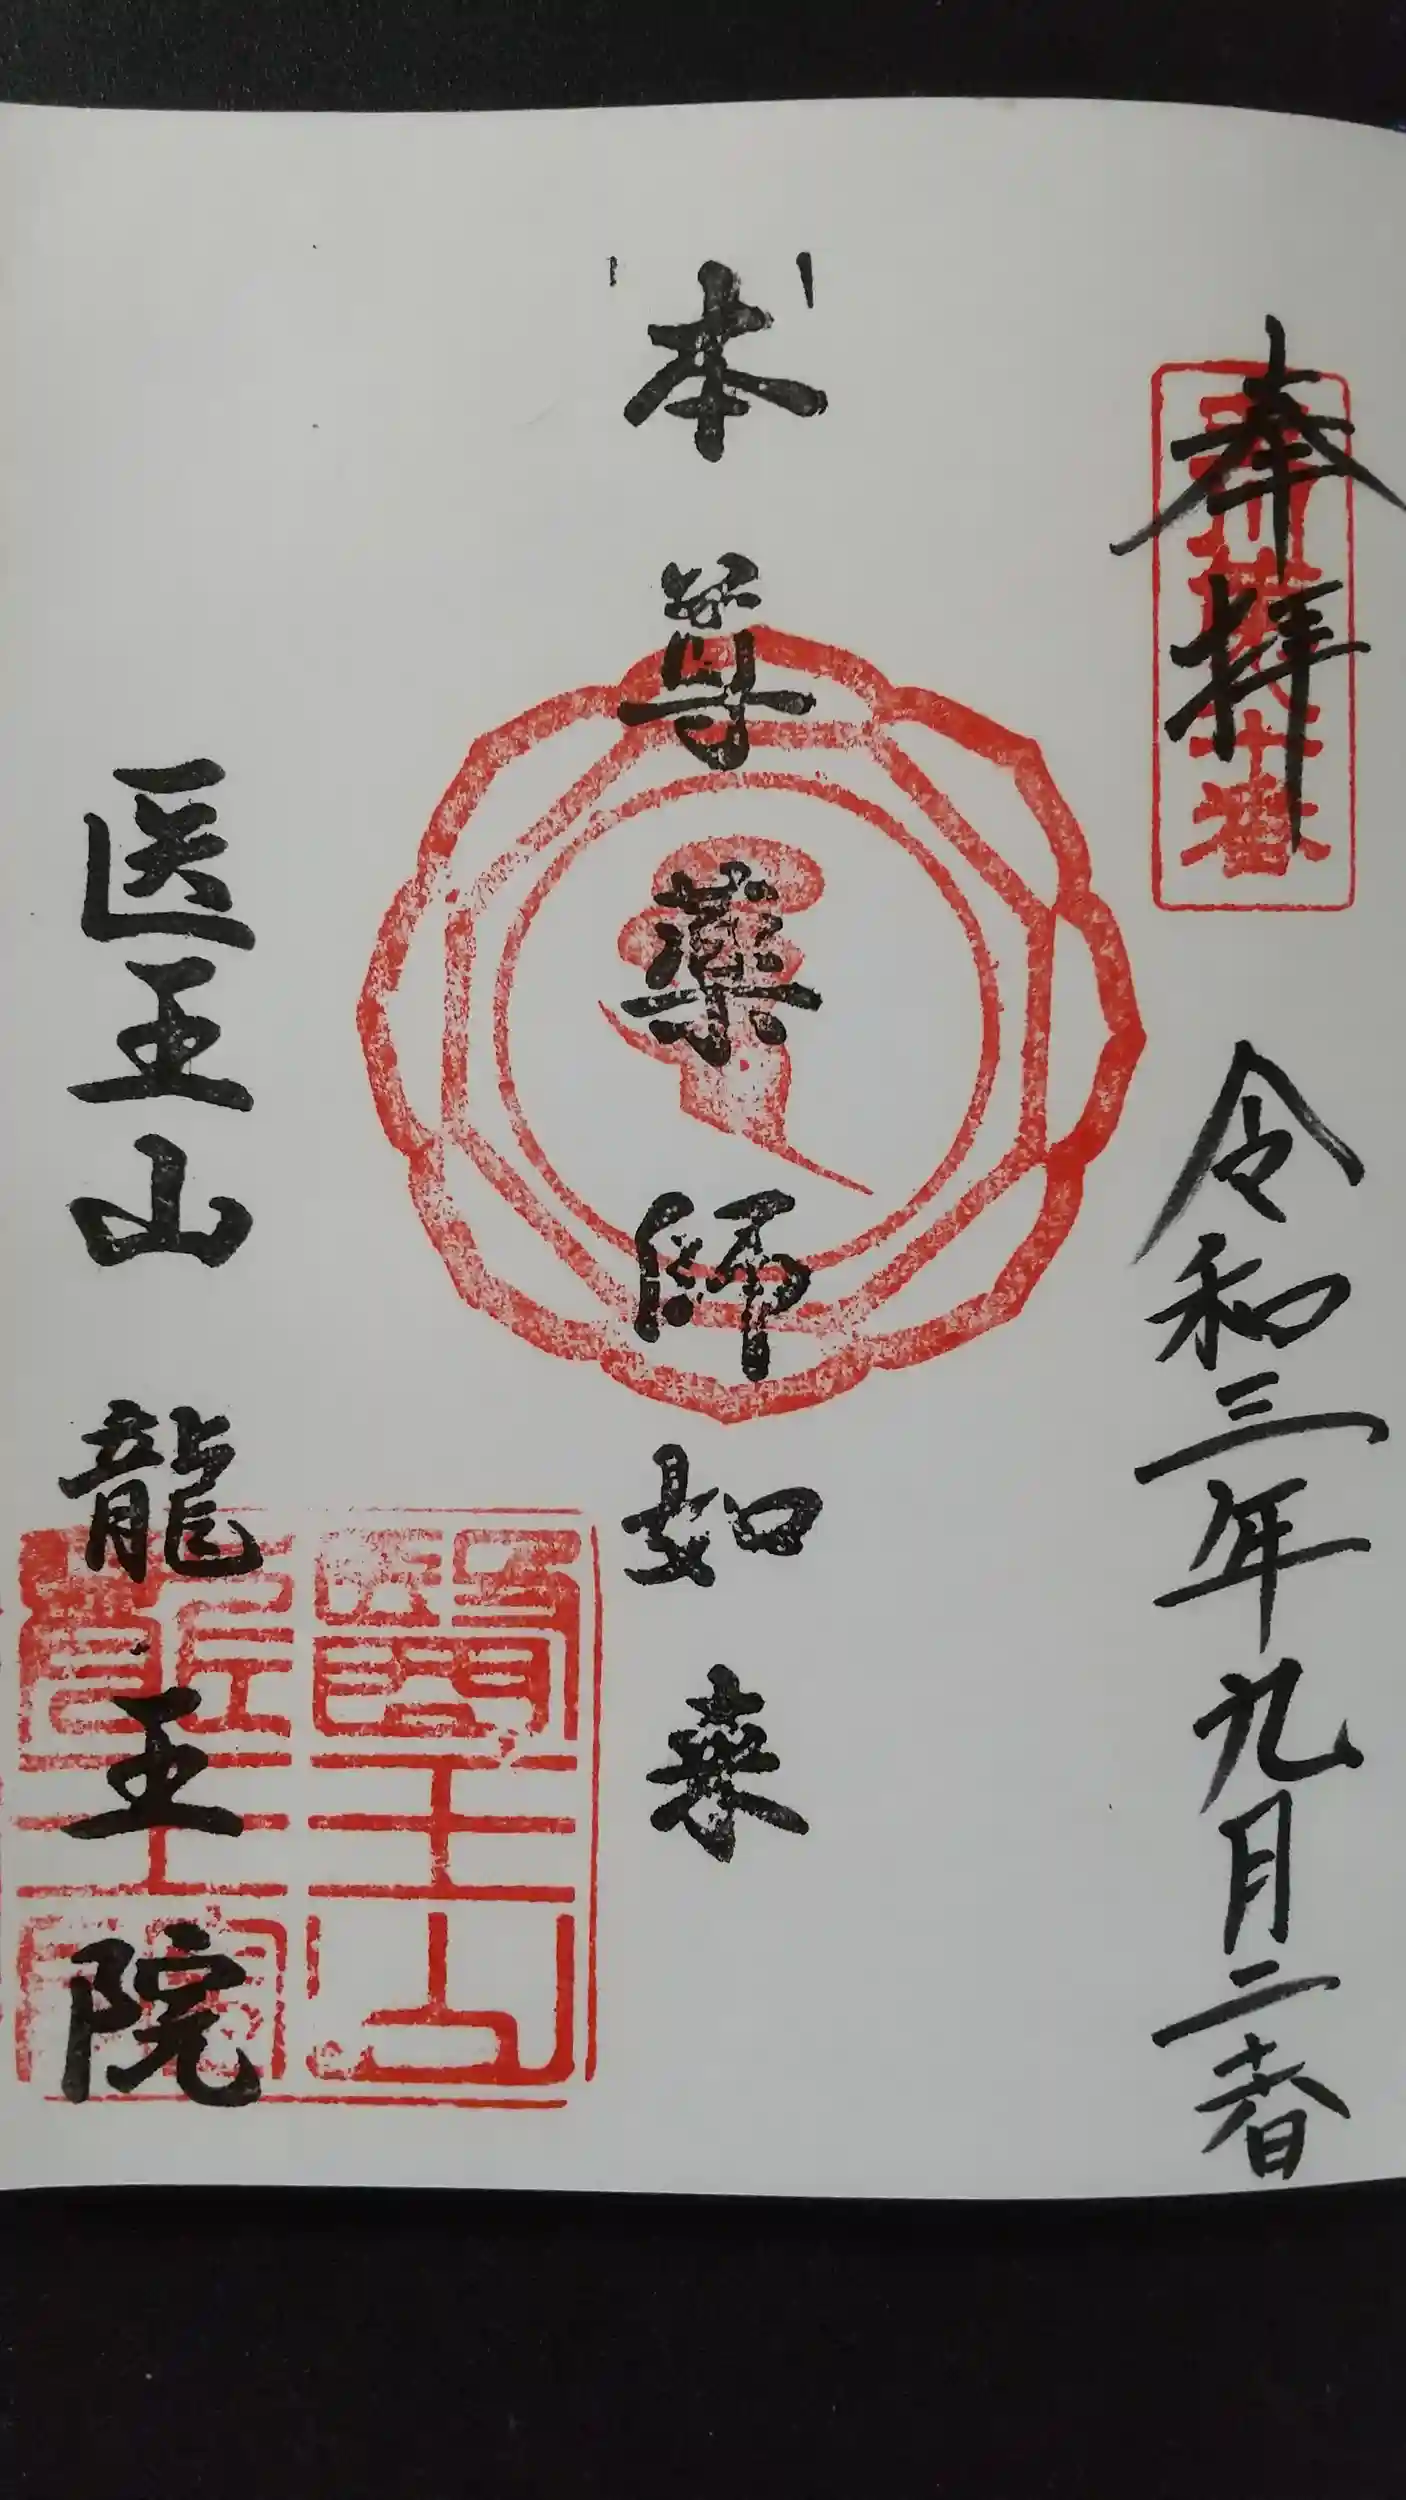 奉拝
令和三年九月二春
本尊薬師如来
医王山 龍王院
醫王山
龍王院